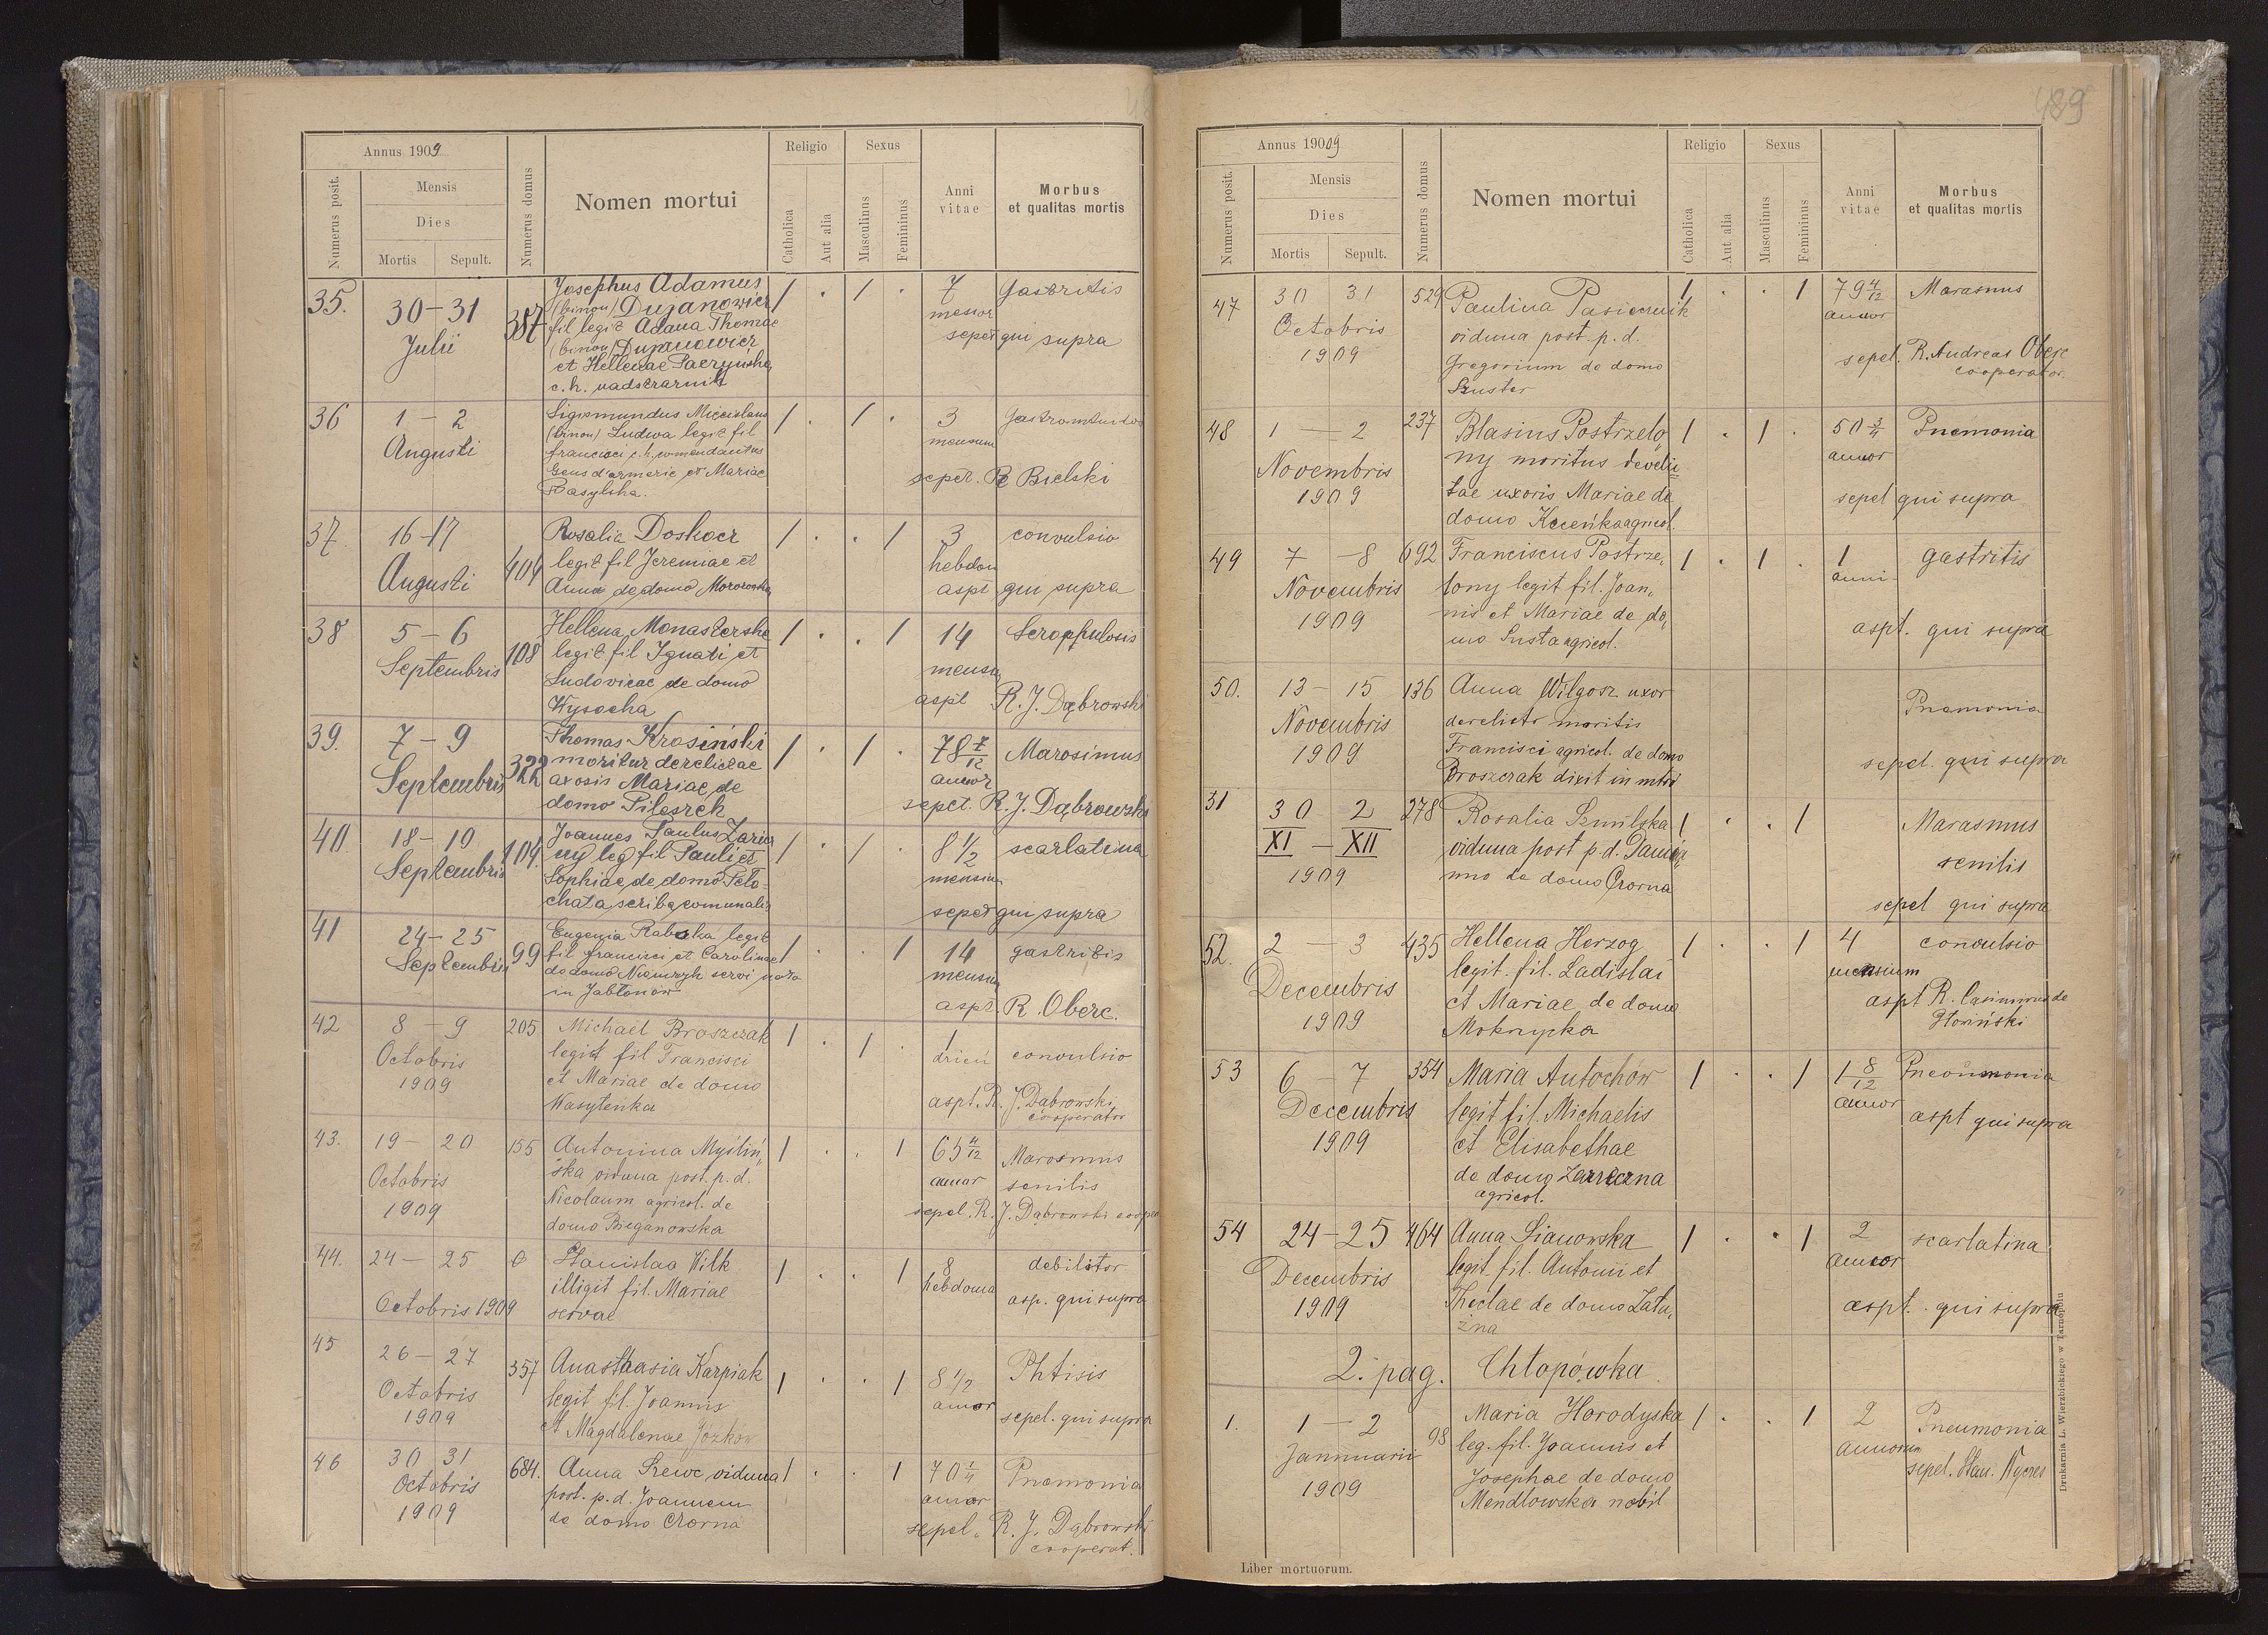 Annus 1909
Numerus posit.
Mensis
Dies
Mortis
Sepult.
Numerus domus
Nomen mortui
Religio
Catholica
Aut alia
Sexus
Masculinus
Femininus
Anni vitae
Morbus
et qualitas mortis
35. 30-31 387 Josephus Adamus / . / . 7 gastritis
Julii (binom) Dujanowicz
fil legit Adama Thomae sepel qui supra
(binom) Dujanowicz
et Hellenae
c. k.
36 1 - 2 Sigismundus Miecislaus / . / . 3
Augusti (binom) Ludwa legit fil mensium
francisci c. k. comendantus
Gens d'armerie et Mariae sepel. R Bielski
37. 16-17 404 Rosalia Doskocz / . . / 3 convulsio
Augusti legit fil Jeremiae et hebdom
Anna de domo aspt qui supra
38 5-6 108 Hellena Monasterska / . . / 14
Septembris legit fil Ignati et mensiu
Ludovicae de domo
Wysocka aspt R. J. Dąbrowski
39. 7-9 322 Thomas Krosiński / . / . 78 7/12 Marosimus
Septembris moritur derelictae annor
Mariae de
domo sepel. R. J. Dąbrowski
40. 18-19 104. Joannes Paulus / . / . 8 1/2 scarlatina
Septembris leg fil Pauli et mensium
Sophiae de domo
scriba comunalis sepel qui supra
41 24-25 99 Eugenia legit / . . / 14 gastritis
Septembris fil francisci et Carolinae mensiu
de domo servi
in Jabłonow aspt. R. Oberc.
42 8 - 9 205 Michael Broszczak 1 . 1 . 1 convulsio
Octobris legit fil Francisci
1909 et Mariae de domo
Wasyteńka aspt. R. J. Dąbrowski
cooperator
43. 19 - 20 155 Antonina Myśliń, 1 . . 1 65 4/12 Marosmus
Octobris ska vidua post. p. d. annor senilis
1909 Nicolaum agricol. de
domo Bieganowska sepel. R. J. Dąbrowski
44. 24 - 25 0 Stanislaa Wilk 1 . . 1 8 debilitor
illigit fil. Mariae hebdoma
Octobris 1909 servae asp. qui supra
45 26 - 27 357 Anasthasia Karpiak 1 . . 1 8 1/2 Phtisis
Octobris legit fil. Joannis annor
1909 et Magdalenae Józkow sepel. qui supra
46 30 31 684. Anna Szewc vidua 1 . . 1 70 Pnemonia
Octobris post. p. d. Joannem annor
1909 de domo Czorna sepel. R. J. Dąbrowski
cooperat.
489
Annus 1909
Numerus posit.
Mensis
Dies
Mortis
Sepult.
Numerus domus
Nomen mortui
Religio
Catholica
Aut alia
Sexus
Masculinus
Femininus
Anni vitae
Morbus
et qualitas mortis
47 30 31 529 Paulina Pasicznik 1 . . 1 79 4/12 Marasmus
Octobris vidua post. p. d. annor
1909 Gregorium de domo sepel. R. Andreas Oberc
Szuster cooperator.
48 1 - 2 237 Blasius Postrzelo, 1 . 1 . 50 3/4 Pnemonia
Novembris ny moritus annor
1909 tae uxoris Mariae de sepel qui supra
domo agricol.
49 7 - 8 692 Franciscus Postrze, 1 . 1 . 1 gastritis
Novembris lony legit fil. Joan, anni
1909 nis et Mariae de do, aspt. qui supra
mo Susta agricol.
50. 13 - 15 136 Anna Wilgosz uxor Pnemonia
Novembris derelicta maritis
1909 Francisci agricol. de domo sepel. qui supra
Broszczak
51 30 2 278 Rosalia 1 . . 1 Marasmus
XI - XII vidua post p. d. senilis
1909 de domo Czorna sepel qui supra
52. 2 - 3 435 Hellena Herzog 1 . . 1 4 convulsio
Decembris legit. fil. Ladislai mensium
1909 et Mariae de domo aspt R. Casimirus de
Mokrycka
53 6 - 7 354 Maria Antochow 1 . . 1 1 8/12 Pneoumonia
Decembris legit fil. Michaelis annor
1909 et Elisabethae aspt qui supra
de domo
agricol.
54 24-25 464 Anna Sianowska 1 . . 1 2 scarlatina
Decembris legit. fil. Antonii et annor
1909 Theclae de domo Zału, aspt. qui supra
żna
2. pag. Chłopówka
1. 1 - 2 98 Maria Horodyska 1 . . 1 2 Pneumonia
Jannuarii leg. fil. Joannis et annorum
1909 Josephae de domo sepel.
Mendlowska nobil
Liber mortuorum.
Drukarnia L. Wierzbickiego w Tarnopolu